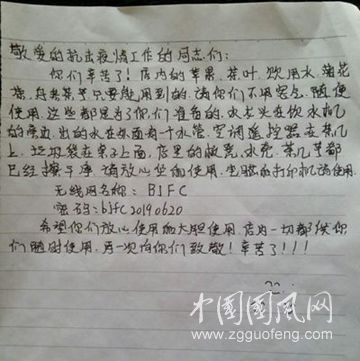 敬爱的抗击疫情工作的同志们:
你们辛苦了!店内的苹果、茶叶、饮用水、菊花
茶、只要能用到的,请你们不用客气,随便
使用。这些都是为了你们准备的,水龙头在饮水机
的旁边,出的水在外面有个水管,空调遥控器在茶几
上,垃圾袋在桌子上面,店里的板凳、水壳、茶几等都
已经擦干净,请放心坐的使用,电脑和打印机请使用。
无线网名称:BJFC
密码:bjfc20190620
希望你们放心使用和大胆使用,店内一切都供你
们随时使用,再一次向你们致敬!辛苦了!!!
中国国风网
www.zgguofeng.com